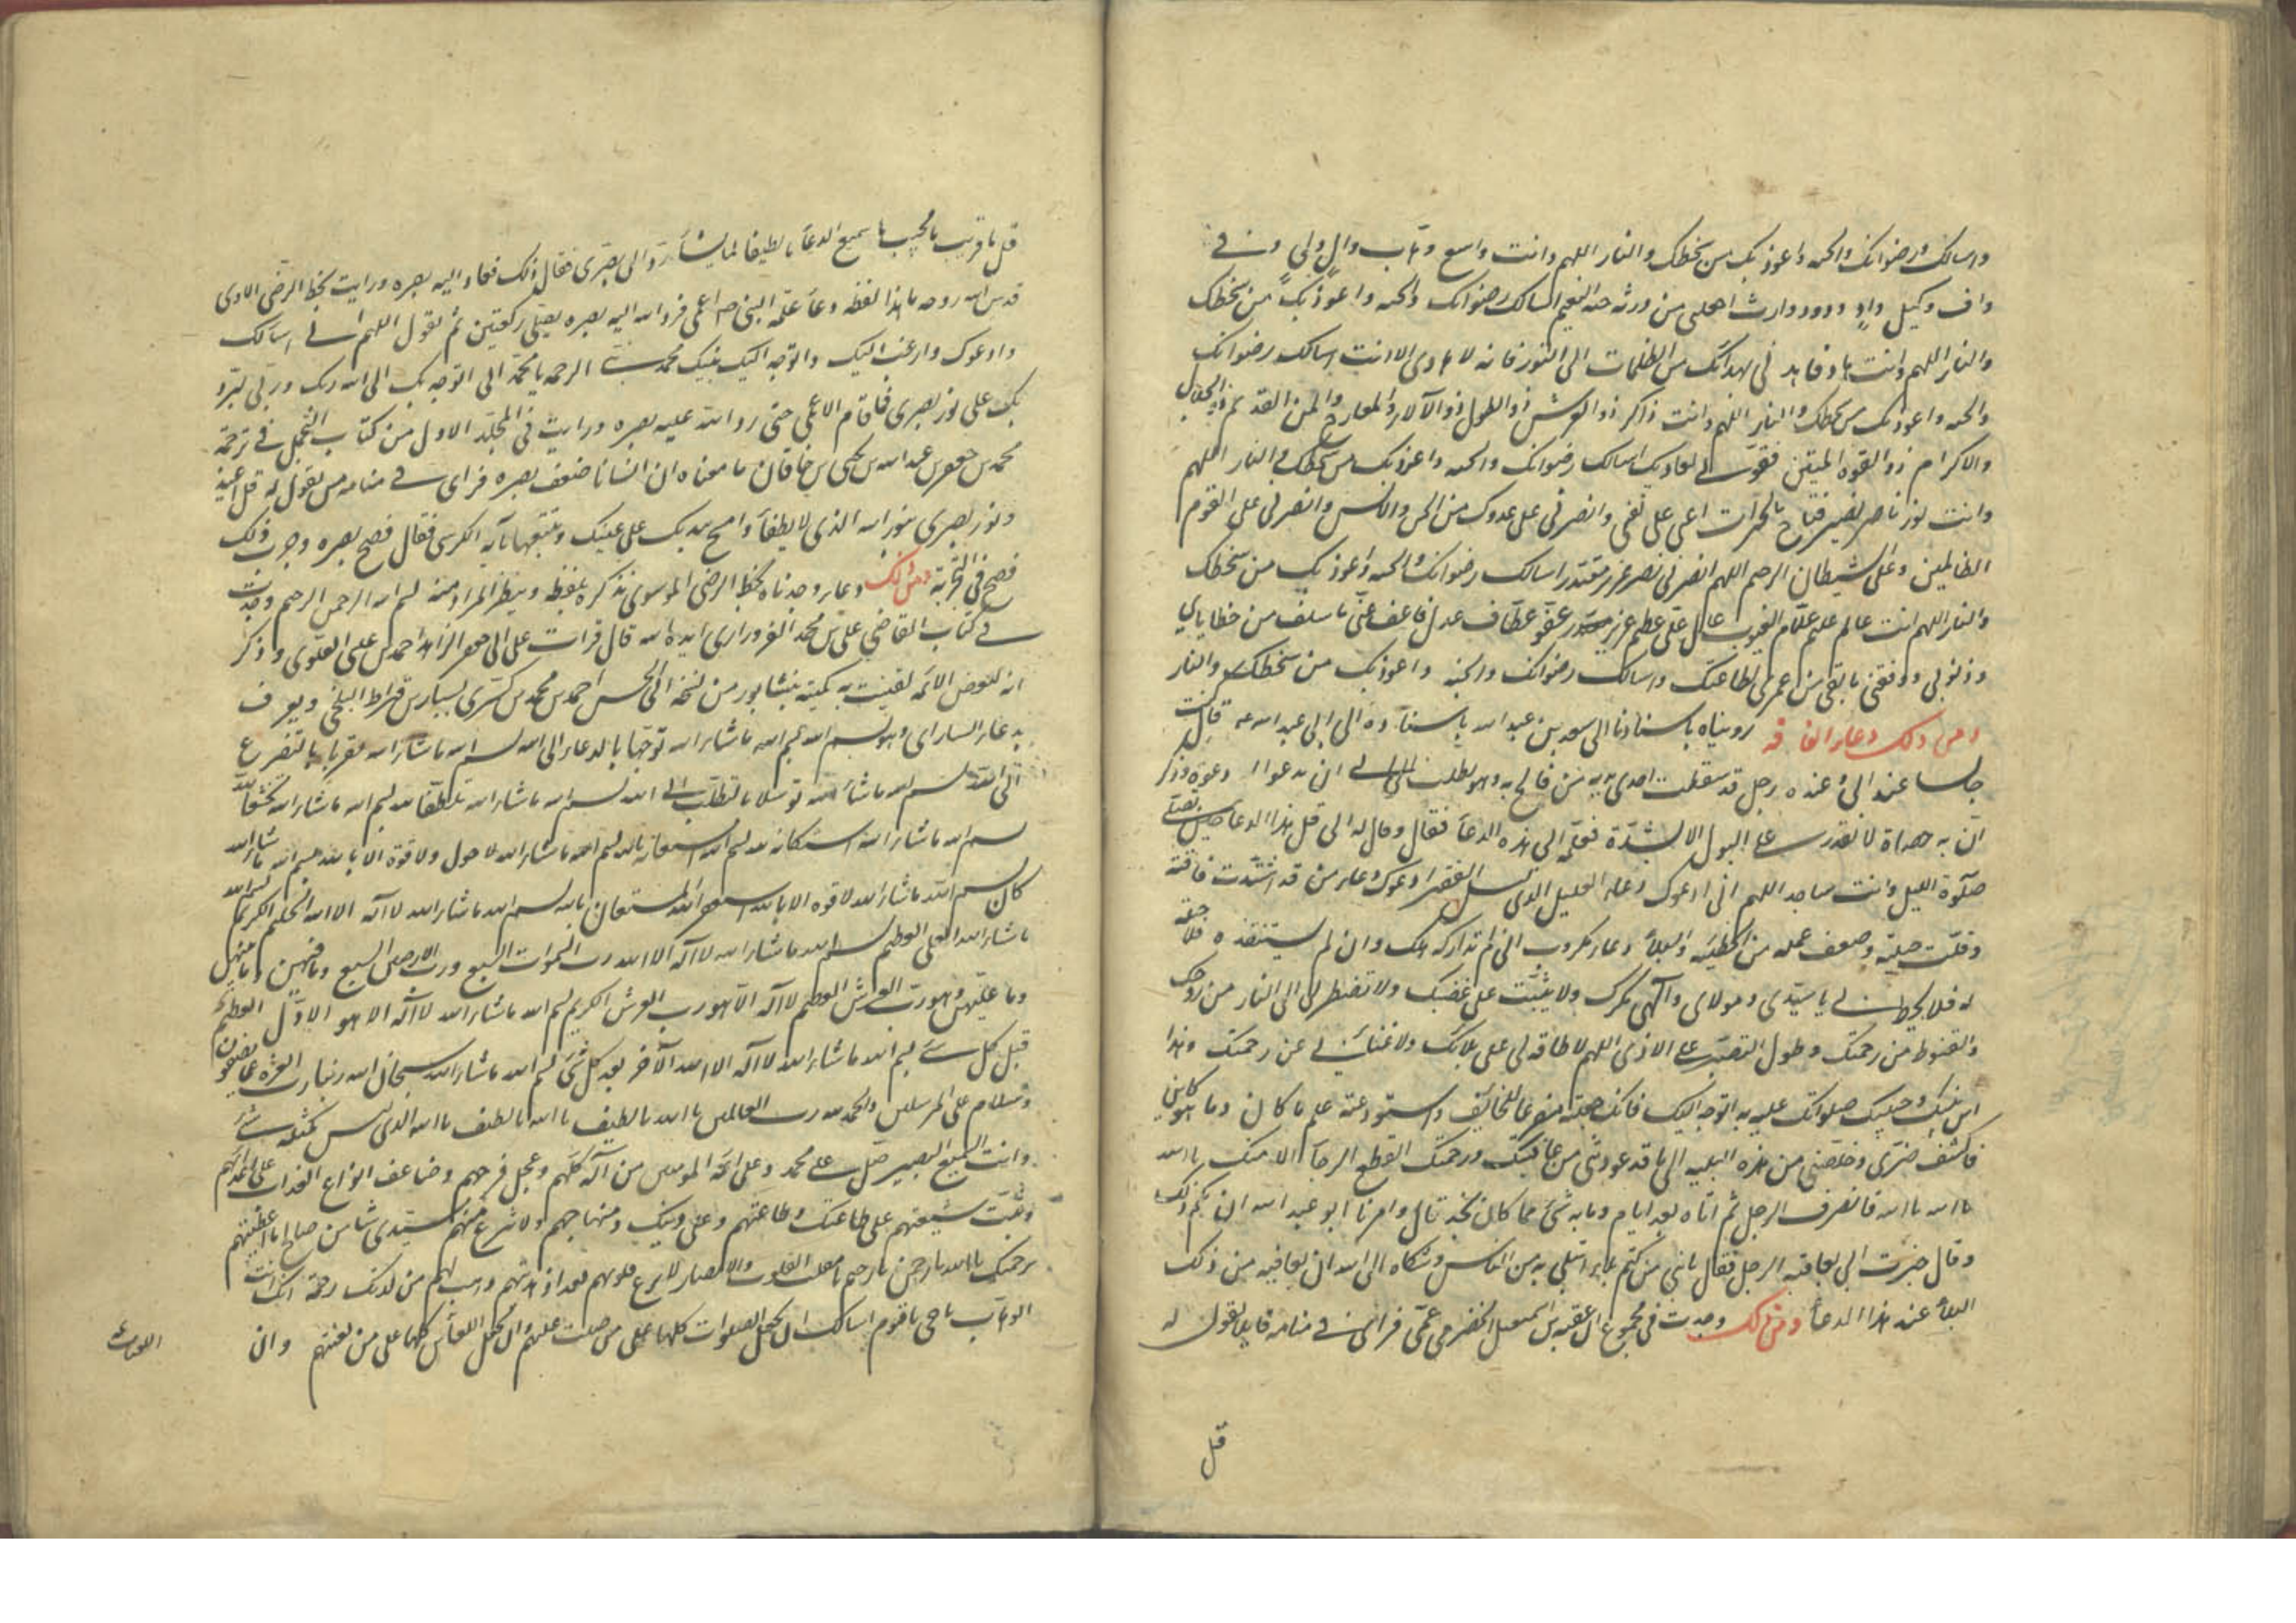 واسالك رضوانك والجنه واعوذ بك من سخطك والنار اللهم وانت واسع وهاب وال ولى وفى
واف وكيل واد ودود وارث اجعلنى من ورثه جنه النعيم اسالك رضوانك والجنه واعوذ بك من سخطك
والنار اللهم وانت هاد فاهدنى بهداك من الظلمات الى النور فانه لا هادى الا انت اسالك رضوانك
والجنه واعوذ بك من سخطك والنار اللهم وانت ذاكر ذو العرش ذو الطول ذو الآلاء والمعارج والمن القديم ذو الجلال
والاكرام ذو القوه المتين فقونى لعبادتك اسالك رضوانك والجنه واعوذ بك من سخطك والنار اللهم
وانت نور ناصر نصير فتاح بالخيرات اعنى على نفسى وانصرنى على عدوك من الجن والانس وانصرنى على القوم
الظالمين وعلى الشيطان الرجيم اللهم انصرنى نصر عزيز مقتدر اسالك رضوانك والجنه واعوذ بك من سخطك
والنار اللهم انت عالم عليم علام الغيوب عال على عظيم عزيز عفو عطاف عدل فاعف عنى ما سلف من خطاياى
وذنوبى ووفقنى ما بقى من عمرى لطاعتك واسالك رضوانك والجنه واعوذ بك من سخطك والنار
ومن ذلك دعاء رويناه باسنادنا الى سعد بن عبد الله باسناده الى ابى عبد الله قال كنت
جالسا عند ابى وعنده رجل قد سقطت احدى يديه من فالج به وهو يطلب الى ابى ان يدعو له دعوة وذكر
ان به حصاة لا يقدر على البول الا بشدة فعلمه ابى هذه الدعا فقال وقال له ابى قل هذا الدعا حين تصلى
صلوة الليل وانت ساجد اللهم انى ادعوك دعاء العليل الذليل الفقير ادعوك دعاء من قد اشتدت فاقته
وقلت حيلته وضعف عمله من الخطيئه والبلا دعاء مكروب ان لم تداركه هلك وان لم تستنقذه فلا حيلة
له فلا يحيط بى يا سيدى ومولاى والهى مكرك ولا يثبت على غضبك ولا تضطرنى الى الياس من روحك
والقنوط من رحمتك وطول التصبر على الاذى اللهم لا طاقه لى على بلائك ولا غنائى عن رحمتك وهذا
ابن نبيك وحبيبك صلواتك عليه به اتوجه اليك فانك جعلته مفزعا للخائف واستودعته علم ما كان وما هو كاين
فاكشف ضرى وخلصنى من هذه البليه الى ما قد عودتنى من عافيتك ورحمتك انقطع الرجا الا منك يا الله
يا الله يا الله فانصرف الرجل ثم اتاه بعد ايام وما به شى مما كان يجد قال وامرنا ابو عبد الله ان نكتم ذلك
وقال خبرت ابى بعافيه الرجل فقال يا بنى من كتم بلاء ابتلى به من الناس وشكاه الى الله ان يعافيه من ذلك
البلا عند هذا الدعا ومن ذلك وجدت فى مجموع ان عقبه بن اسمعيل الحضرمى عمى فراى فى منامه قايلا يقول له
قل
قل يا قريب يا مجيب يا سميع الدعا يا لطيفا لما يشاء رد الى بصرى فقال ذلك فعاد اليه بصره ورايت بخط الرضى الاوى
قدس الله روحه ما هذا لفظه دعا علمه النبى ص اعمى فرد الله اليه بصره يصلى ركعتين ثم يقول اللهم انى اسالك
وادعوك وارغب اليك واتوجه اليك بنبيك محمد نبى الرحمه يا محمد انى اتوجه بك الى الله ربك وربى ليرد
بك على نور بصرى فما قام الاعمى حتى رد الله عليه بصره ورايت فى المجلد الاول من كتاب التجمل فى ترجمة
محمد بن جعفر بن عبد الله بن يحيى بن خاقان ما معناه ان انسانا ضعف بصره فراى فى منامه من يقول له قل اعيذ
ونور بصرى بنور الله الذى لا يطفا وامسح بيدك على عينيك وتتبعها بآيه الكرسى فقال فصح بصره وجرب ذلك
فصح فى التجربة ومن ذلك دعاء وجدناه بخط الرضى الموسوى نذكره بلفظه وينظر المراد منه بسم الله الرحمن الرحيم وجدت
فى كتاب القاضى على بن محمد الفزورارى ايده الله قال قرات على ابى جعفر الزاهد احمد بن على العلوى وذكر
انه لبعض الائمه بنيشابور من نسخه ابى الحسن احمد بن محمد بن كسرى بن يسار بن قيراط البلخى ويعرف
بدعاء السراى وهو بسم الله بسم الله ما شاء الله توجها بالدعاء الى الله بسم الله ما شاء الله تقربا بالتضرع
الى الله بسم الله ما شاء الله توسلا بالتطلب الى الله بسم الله ما شاء الله تلطفا لله بسم الله ما شاء الله تخشعا لله
بسم الله ما شاء الله استكانه لله بسم الله استعانه بالله بسم الله ما شاء الله لا حول ولا قوة الا بالله بسم الله ما شاء الله
كان بسم الله ما شاء الله لا قوه الا بالله بسم الله المستعان بالله بسم الله ما شاء الله لا اله الا الله الحليم الكريم بسم الله
ما شاء الله العلى العظيم بسم الله ما شاء الله لا اله الا الله رب السموات السبع ورب الارضين السبع وما فيهن وما بينهن
وما عليهن وهو رب العرش العظيم لا اله الا هو رب العرش الكريم بسم الله ما شاء الله لا اله الا هو الاول العظيم
قبل كل شى بسم الله ما شاء الله لا اله الا الله الآخر بعد كل شى بسم الله ما شاء الله سبحان الله ربنا رب العزه عما يصفون
وسلام على المرسلين والحمد لله رب العالمين يا الله يا لطيف يا الله يا لطيف يا الله الذى ليس كمثله شى
وانت السميع البصير صل على محمد وعلى ائمة المومنين من آله كلهم وعجل فرجهم وضاعف انواع العذاب على اعدائهم
وثبت شيعتهم على طاعتك وطاعتهم وعلى دينك ومنهاجهم ولا تنزع منهم سيدى شيئا من صالح ما اعطيتهم
برحمتك يا الله يا رحمن يا رحيم يا مقلب القلوب والابصار لا تزغ قلوبهم بعد اذ هديتهم وهب لهم من لدنك رحمة انك انت
الوهاب يا حى يا قيوم اسالك ان تجعل الصلوات كلها على من صليت عليهم وان تجعل اللعائن كلها على من لعنتهم وان